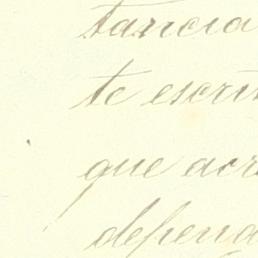 tancia
te escri
que acr
depend